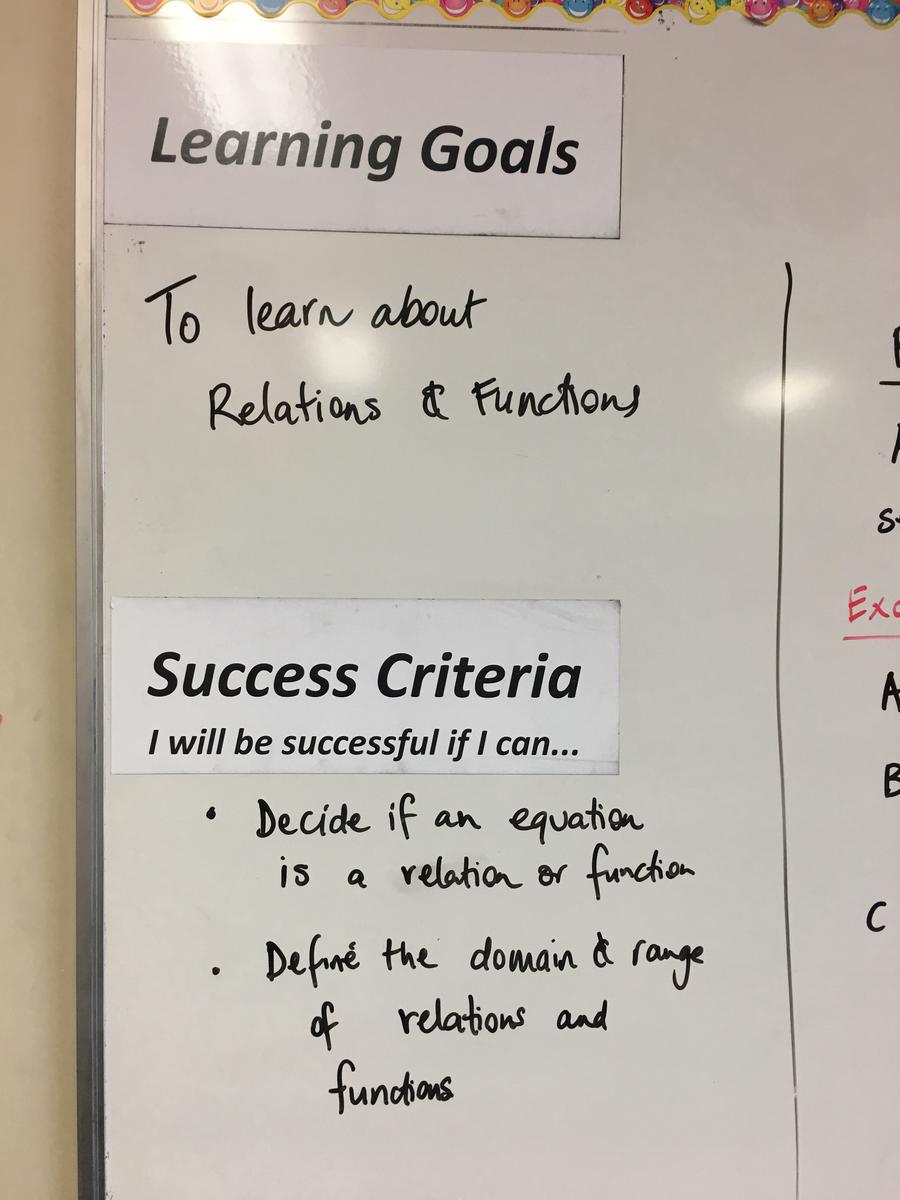 Learning Goals
To learn about
Relations & Functions
Success Criteria
I will be successful if I can...
• Decide if an equation
is a relation or function
• Define the domain & range
of relations and
functions
A
B
C